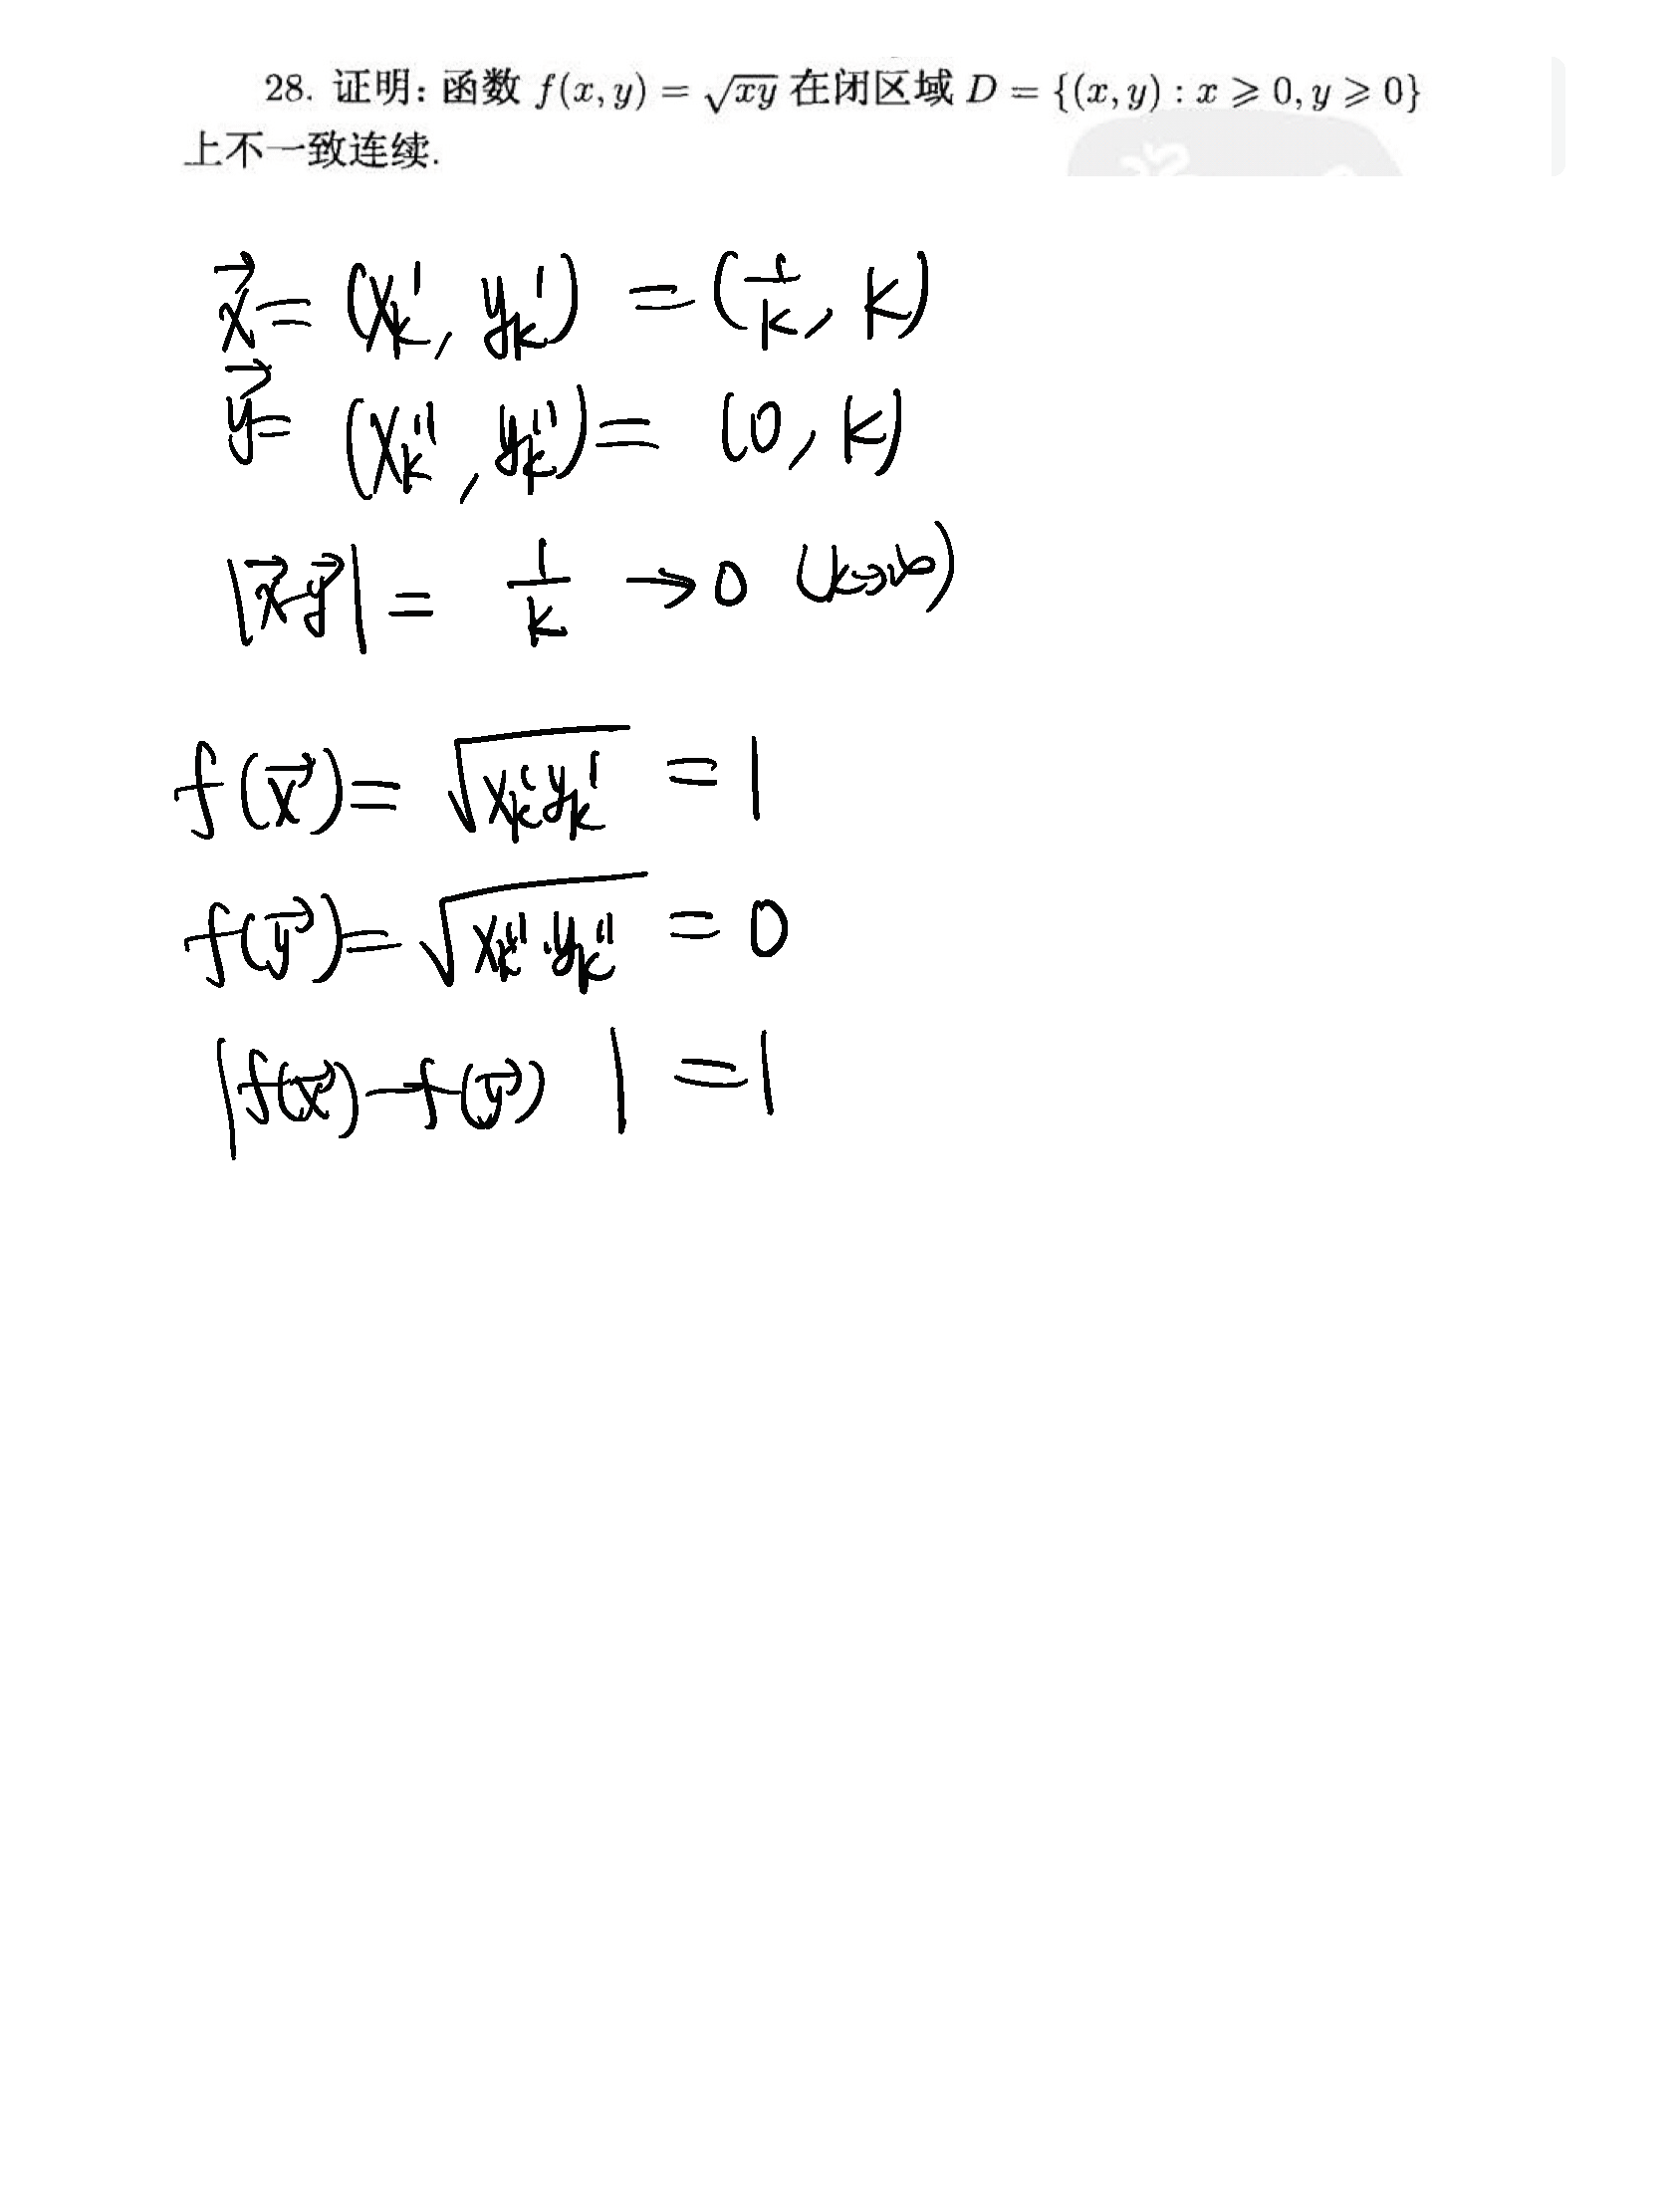 28. 证明: 函数 f(x, y) = √xy 在闭区域 D = {(x, y) : x ⩾ 0, y ⩾ 0}
上不一致连续.
x⃗ = (x_k', y_k') = (1/k, k)
y⃗ = (x_k'', y_k'') = (0, k)
|x⃗-y⃗| = 1/k → 0 (k→∞)
f(x⃗) = √(x_k' y_k') = 1
f(y⃗) = √(x_k''·y_k'') = 0
|f(x⃗)-f(y⃗)| = 1